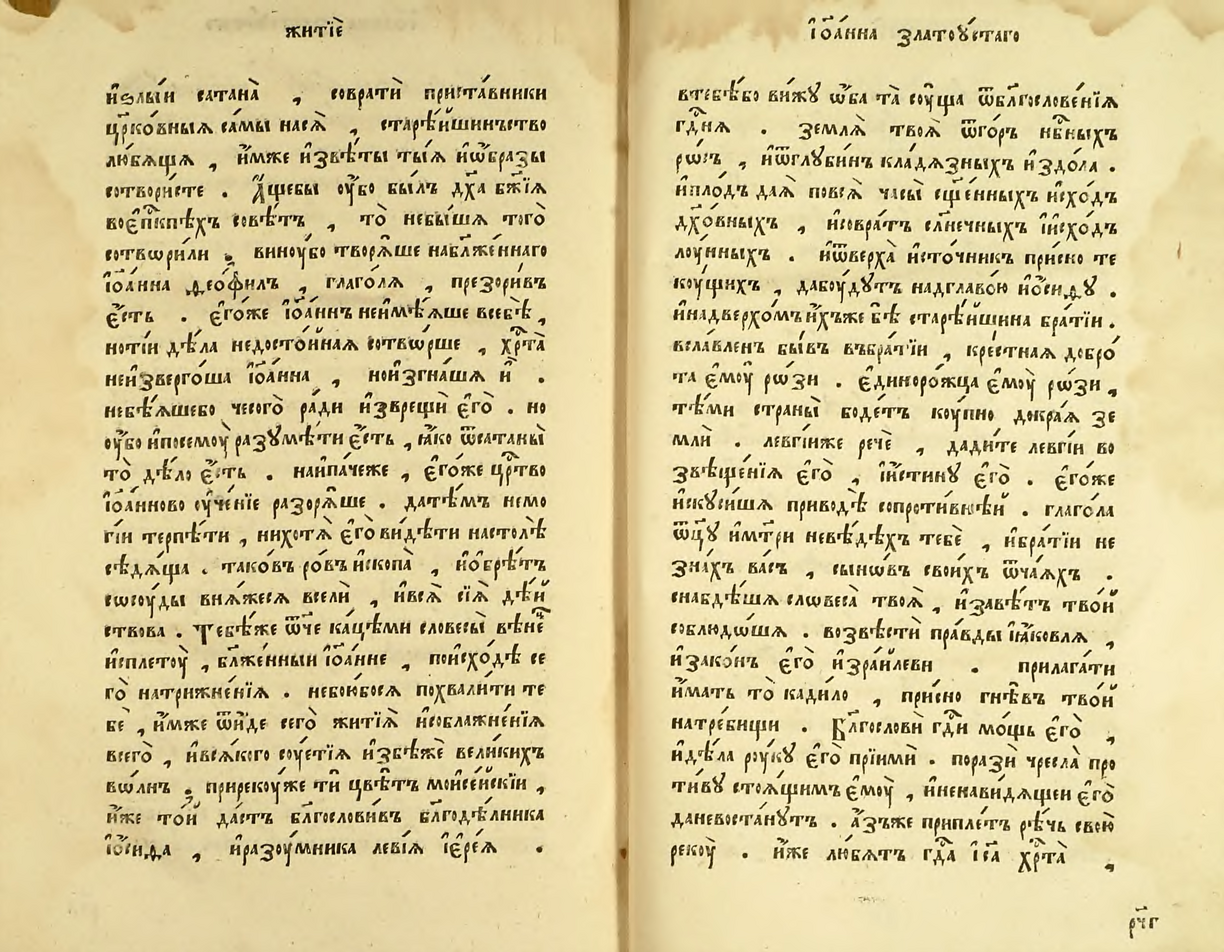 житїѐ
и҆ѕлы́й сатана̀ , совратѝ приста́вники
цр҃ко́вныѧ са́мы насѧ̀ , старѣ́йшиньство
лю́бѧщѧ , и҆́мже и҆зве́ты ты́ѧ и҆ѡ҆́бразы
сотвори́сте . А҆́щебы ᲂу҆́бо бы́лъ дх҃а бж҃їѧ
воє҆пⷭ҇кпѣхъ совѣ́тъ , то̀ небы́шѧ того̀
сотвѡри́ли . виноу́бо творѧ́ше набл҃же́ннаго
і҆ѡа́нна ѳео́филъ , глаго́лѧ , презори́въ
є҆́сть . є҆го́же і҆ѡа́ннъ неимѣ́ѧше всебѣ̀ ,
нотїи дѣ́ла недосто́йнаѧ сотвѡ́рше , хрⷭ҇та̀
неи҆зверго́ша і҆ѡа́нна , нои҆згна́шѧ и҆̀ .
небѣ́ѧшебо чесого̀ ра́ди и҆зврещѝ є҆го̀ . но
ᲂу҆́бо и҆посемоу̀ разꙋмѣ́ти є҆́сть , ꙗ҆́ко ѿсатаны̀
то̀ дѣ́ло є҆́сть . наипа́чеже , є҆го́же цр҃тво
і҆ѡа́нново ᲂу҆че́нїе разорѧ́ше . датѣ́мъ немо
гїи терпѣ́ти , нихотѧ̀ є҆го̀ ви́дѣти настолѣ̀
сѣдѧ́ща . тако́въ ро́въ и҆скопа̀ , и҆ѡ҆брѣ́тъ
сѡсоу́ды внѧ́жесѧ вселѝ , и҆всѧ̀ сїѧ̀ дѣ́й
ствова . Тебѣ́же ѿ́че кацѣ́ми словесы̀ вѣне́ⷰ҇
и҆сплетоу̀ , бл҃же́нныи і҆ѡа́нне , пои҆схо́дѣ се
го̀ натрижне́нїѧ . небою́босѧ похвали́ти те
бѐ , и҆́мже ѿи́де сего̀ житїѧ̀ и҆соблажне́нїѧ
всего̀ , и҆всѧ́кого соуетїѧ и҆збѣжѐ вели́кихъ
вѡ́лнъ . прирекоу́же тѝ цвѣ́тъ моисе́йскїи ,
и҆́же то́й да́стъ бл҃гослови́въ бл҃годѣ́лника
і҆ѡ́сифа , и҆разоу́мника левїѧ̀ і҆ере́ѧ .
і҆ѡа́нна златоу́стаго
втебѣ́бо ви́жꙋ ѡ҆́ба та̀ соу́ща ѿбл҃гослове́нїѧ
гдⷭ҇нѧ . землѧ̀ твоѧ̀ ѿго́ръ нбⷭ҇ныхъ
рѡ́съ , и҆ѿглуби́нъ кла́дѧзныхъ и҆здо́ла .
и҆пло́дъ даѧ̀ повсѧ̀ часы̀ сщ҃е́нныхъ и҆схо́дъ
дх҃о́вныхъ , и҆совра́тъ сл҃нечныхъ и҆и҆схо́дъ
лоу́нныхъ . и҆ѿверха̀ и҆сто́чникъ при́сно те
коу́щихъ , дабоу́дꙋтъ надглаво́ю и҆ѡ́сифꙋ .
и҆надверхо́мъи҆́хъже бѣ̀ старѣ́йшина бра́тїи .
вславленъ бы́въ въбра́тїи , кре́стнаѧ добро
та̀ є҆моу̀ рѡ́зи . є҆диноро́жца є҆моу̀ рѡ́зи ,
тѣ́ми страны̀ боде́тъ коу́пно докра́ѧ зе
млѝ . левгїиже речѐ , дади́те левгїи во
звѣще́нїѧ є҆го̀ , и҆и҆́стинꙋ є҆го̀ . є҆го́же
и҆скꙋси́шѧ приводѣ̀ сопроти́внѣй . глаго́ла
ѿцꙋ̀ и҆мт҃ри невѣ́дѣхъ тебѐ , и҆бра́тїи не
зна́хъ ва́съ , сынѡ́въ свои́хъ ѿча́ѧхъ .
снабдѣ́шѧ словеса̀ твоѧ̀ , и҆завѣ́тъ тво́й
соблюдѡ́шѧ . возвѣстѝ пра́вды і҆ꙗ́ковлѧ ,
и҆зако́нъ є҆го̀ и҆зра́илеви . прилага́ти
и҆́мать то̀ кади́ло , при́сно гнѣ́въ тво́й
натре́бищи . Бл҃гословѝ гдⷭ҇и мо́щь є҆го̀ ,
и҆дѣ́ла роу́кꙋ є҆го̀ прїимѝ . поразѝ чресла̀ про
ти́вꙋ стоѧ́щимъ є҆моу̀ , и҆ненави́дѧщеи є҆го̀
даневоста́нꙋтъ . а҆́зъже приплетъ рѣ́чь свою̀
рекоу̀ . и҆́же лю́бѧтъ гдⷭ҇а і҆сⷭ҇а хрⷭ҇та̀ ,
рч҃г